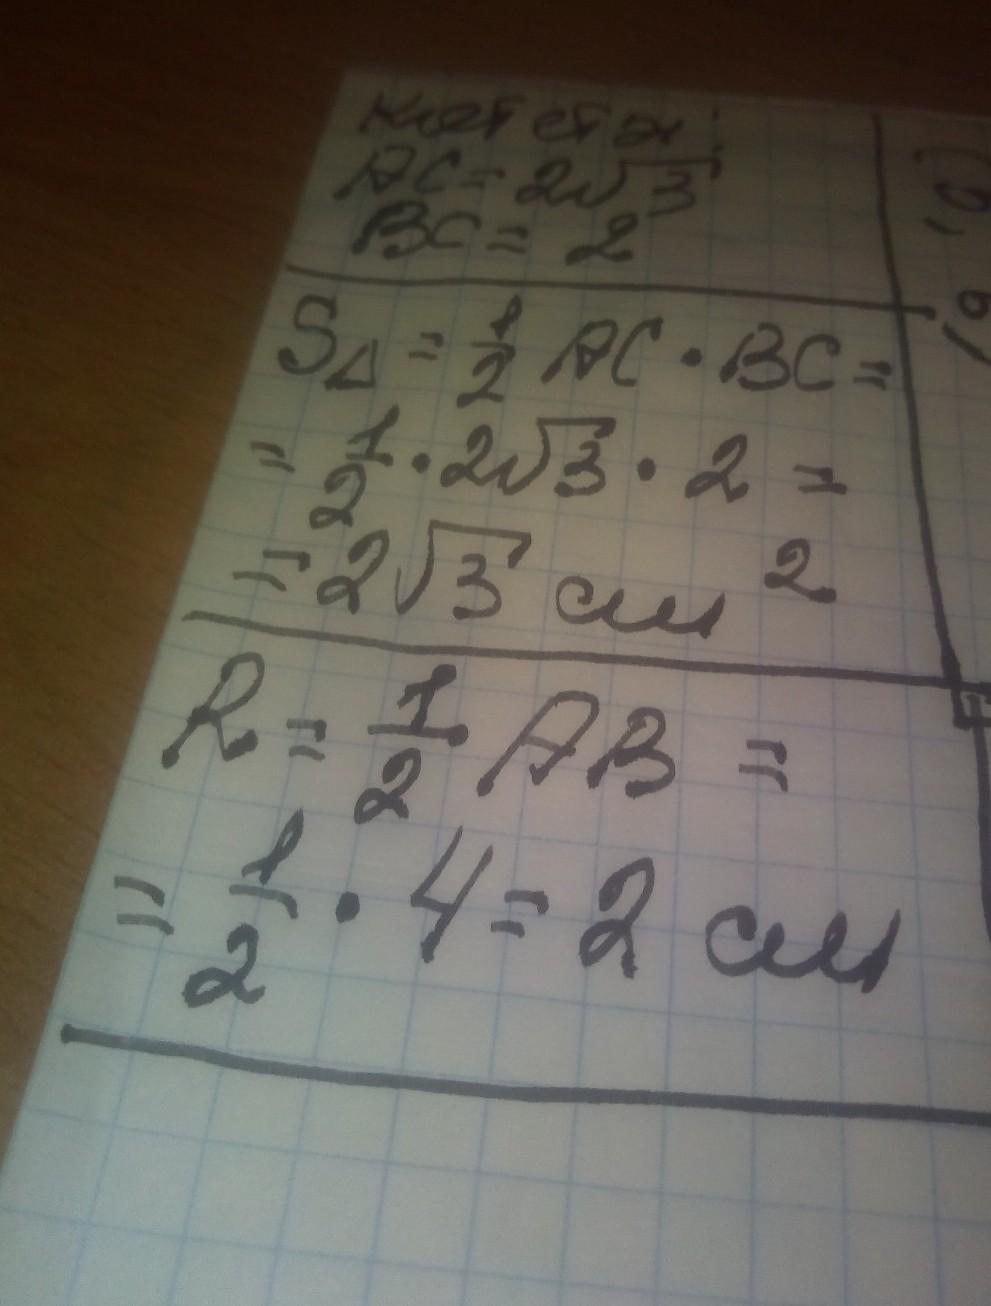 катеты:
AC = 2√3
BC = 2
S△ = 1/2 AC · BC =
= 1/2 · 2√3 · 2 =
= 2√3 см²
R = 1/2 · AB =
= 1/2 · 4 = 2 см